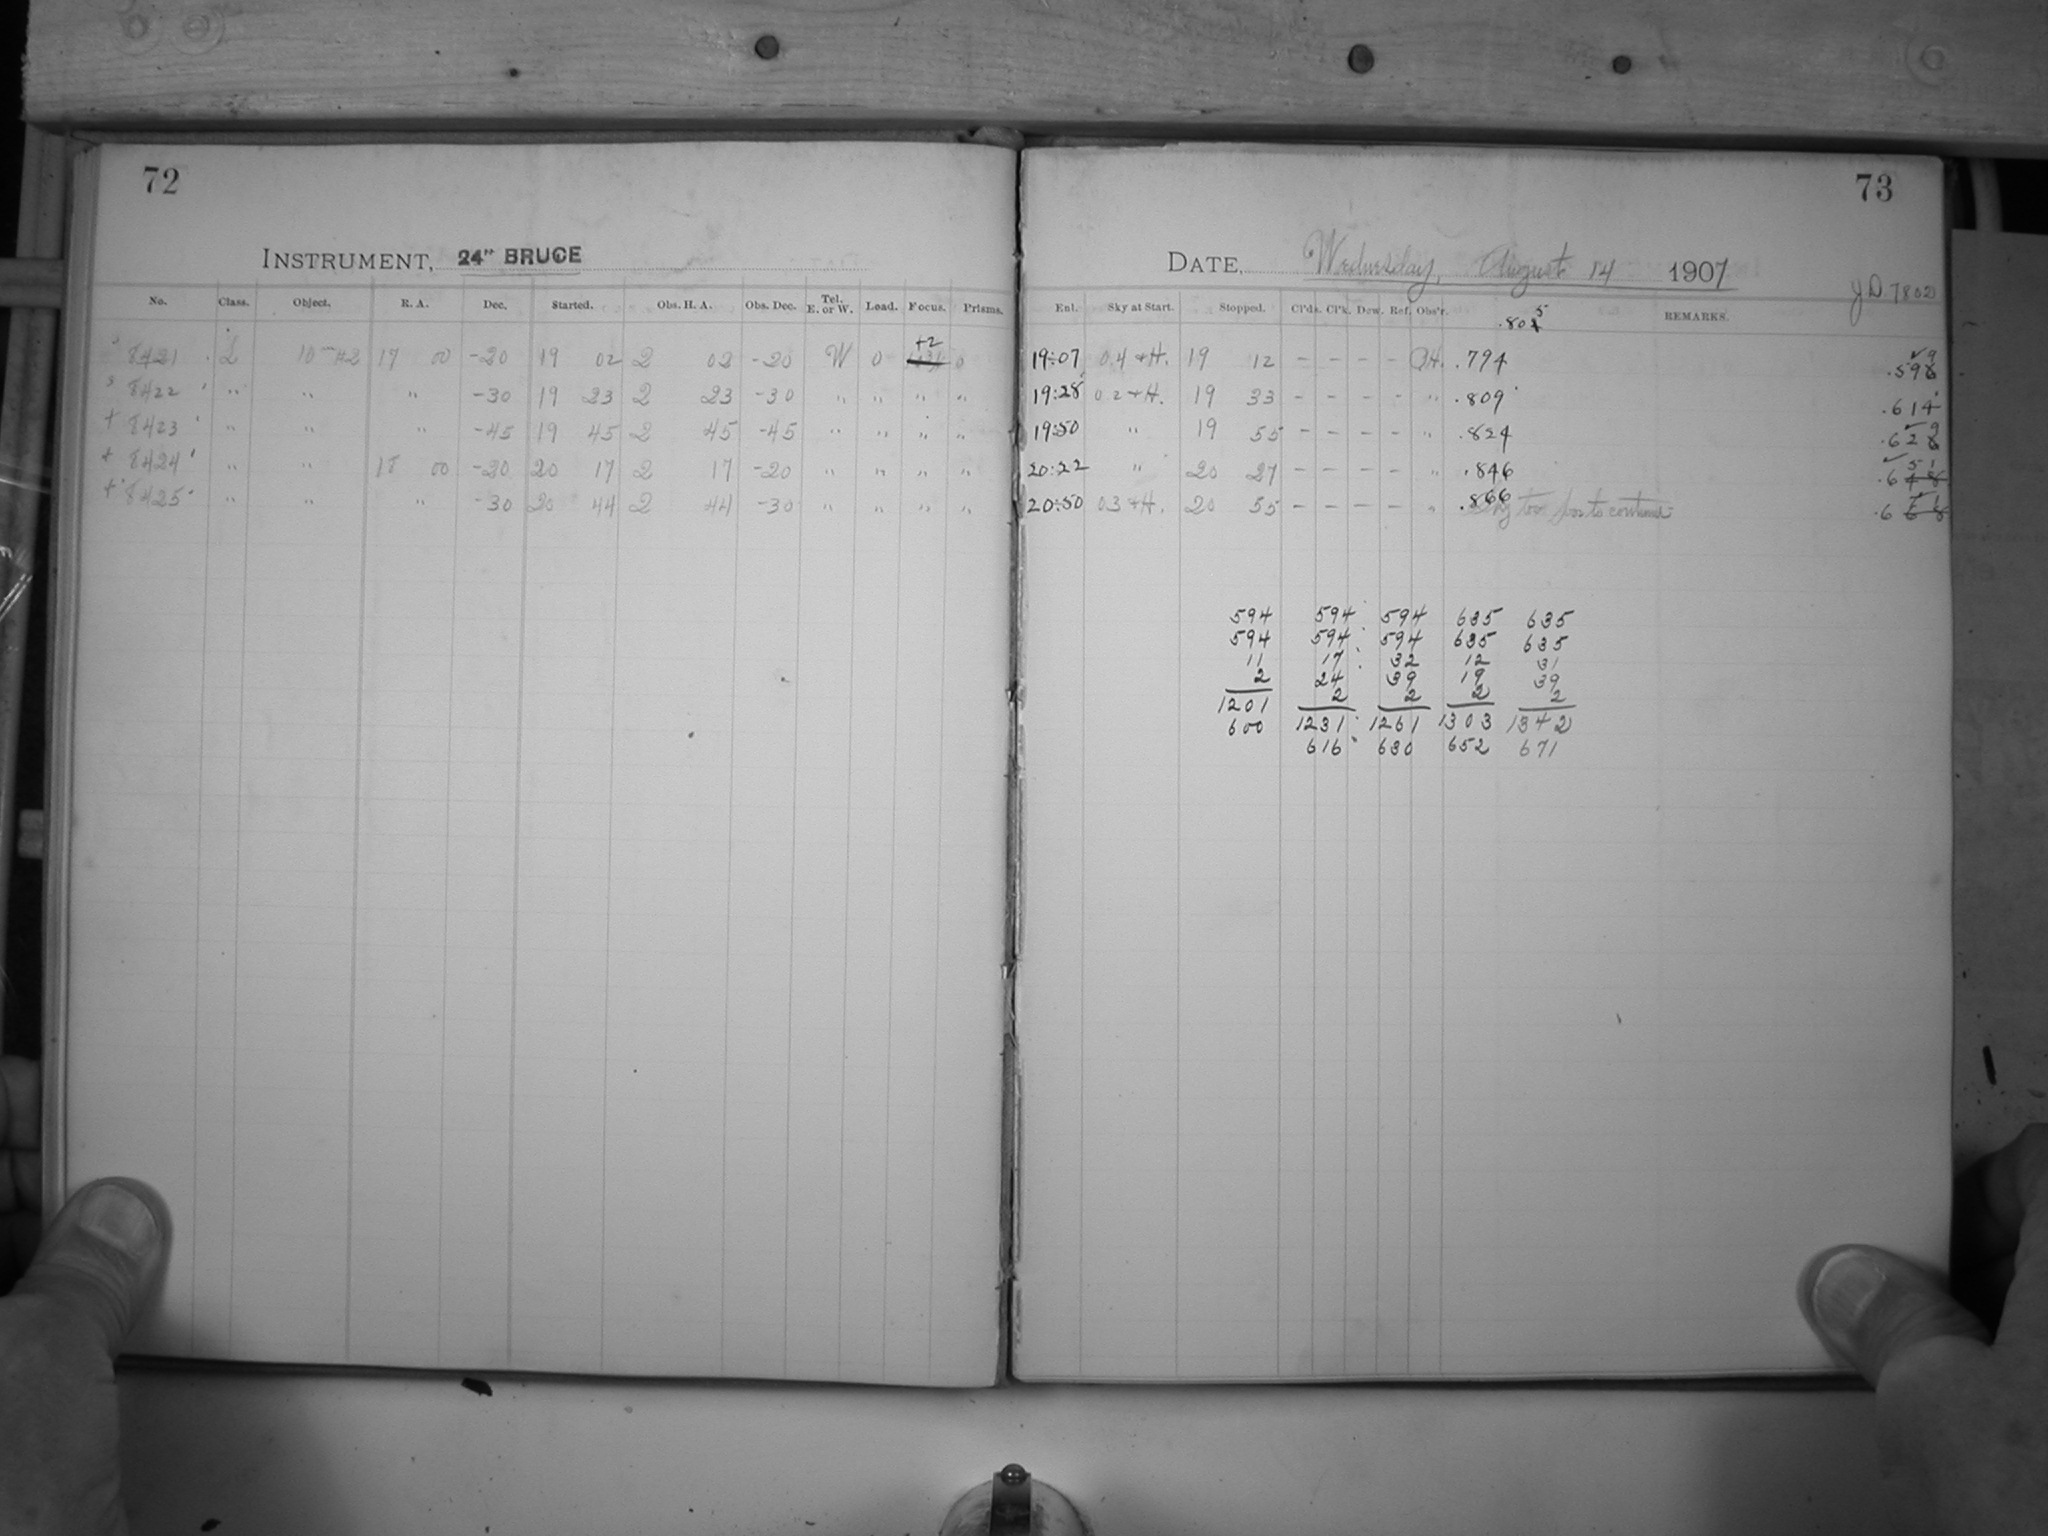 72
INSTRUMENT, 24" BRUCE
No. Class. Object. R. A. Dec. Started. Obs. H. A. Obs. Dec. Tel. E. or W. Load. Focus. Prisms.
+2
8421 L 10m H2 17 00 -20 19 02 2 02 -20 W 0 0
8422 " " " -30 19 23 2 23 -30 " " " "
+ 8423 " " " -45 19 45 2 45 -45 " " " "
+ 8424 " " 18 00 -20 20 17 2 17 -20 " " " "
+ 8425 " " " -30 20 44 2 44 -30 " " " "
73
DATE, Wednesday, August 14 1907
J D 7802
Enl. Sky at Start. Stopped. Cl'ds. Cl'k. Dew. Ref. Obs'r. REMARKS.
19:07 0.4 + H. 19 12 - - - - .794
19:28 0.2 + H. 19 33 - - - - " .809 .614
19:50 " 19 55 - - - - " .824
20:22 " 20 27 - - - - " .846
20:50 0.3 + H. 20 55 - - - - " .866 too poor to continue
594 594 594 635 635
594 594 594 635 635
11 17 32 12 31
2 24 39 19 39
2 2 2 2
1201 1231 1261 1303 1342
600 616 630 652 671